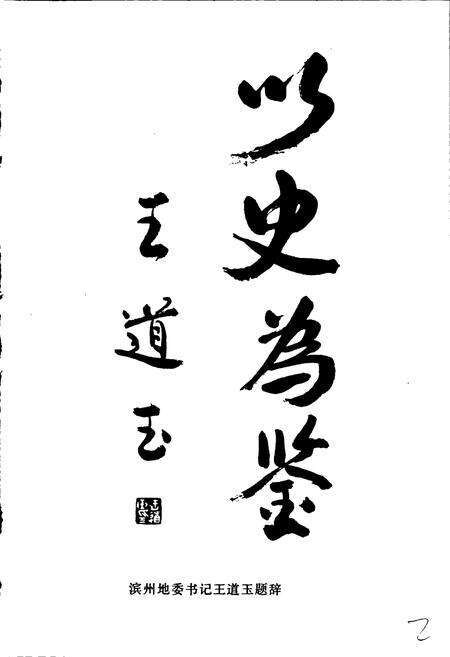 以史為鉴
王道玉
滨州地委书记王道玉题辞